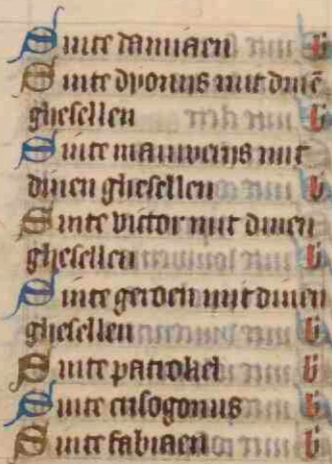 Sinte damiaen b
Sinte dyonijs mit dinē
ghesellen b
Sinte mauricijs mit
dinen ghesellen b
Sinte victor mit dinen
ghesellen b
Sinte gereoen mit dinen
ghesellen b
Sinte patrokel b
Sinte crisogonus b
Sinte fabiaen b